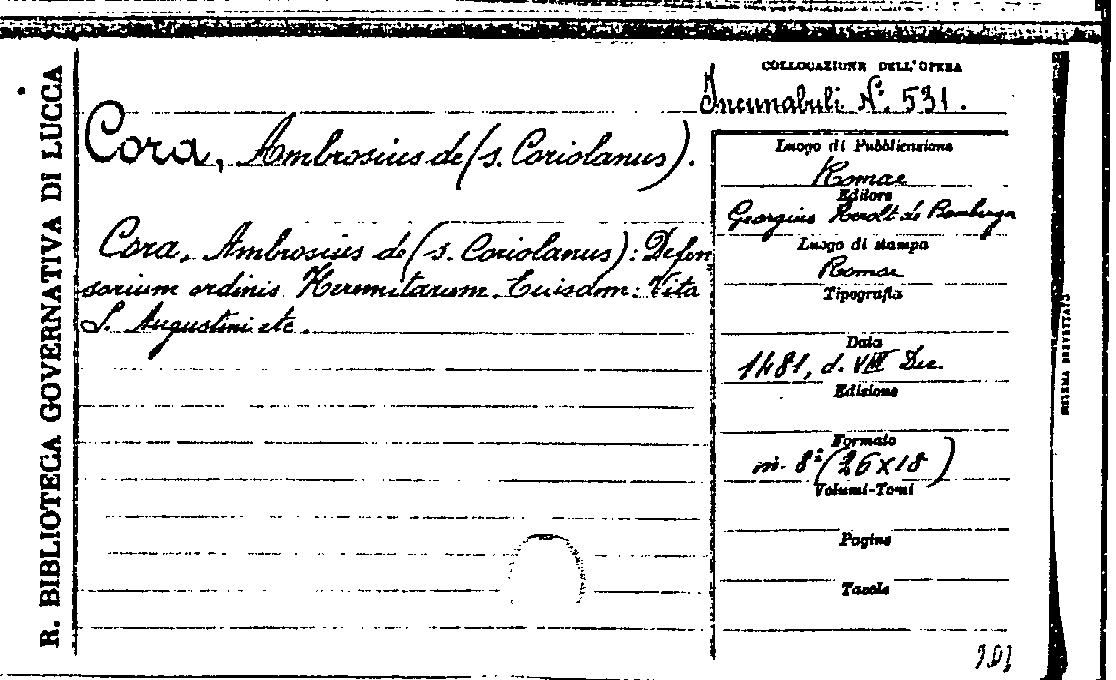 R. BIBLIOTECA GOVERNATIVA DI LUCCA
COLLOCAZIONE DELL'OPERA
Incunabuli N.° 531.
Cora, Ambrosius de (s. Coriolanus).
Cora, Ambrosius de (s. Coriolanus): Defen
sorium ordinis Heremitarum. Eiusdem: Vita
S. Augustini etc.
Luogo di Pubblicazione
Romae
Editore
Georgius Herolt de Bamberga
Luogo di stampa
Romae
Tipografia
Data
1481, d. VIII Dec.
Edizione
Formato
in 8° (26×18)
Volumi-Tomi
Pagine
Tavole